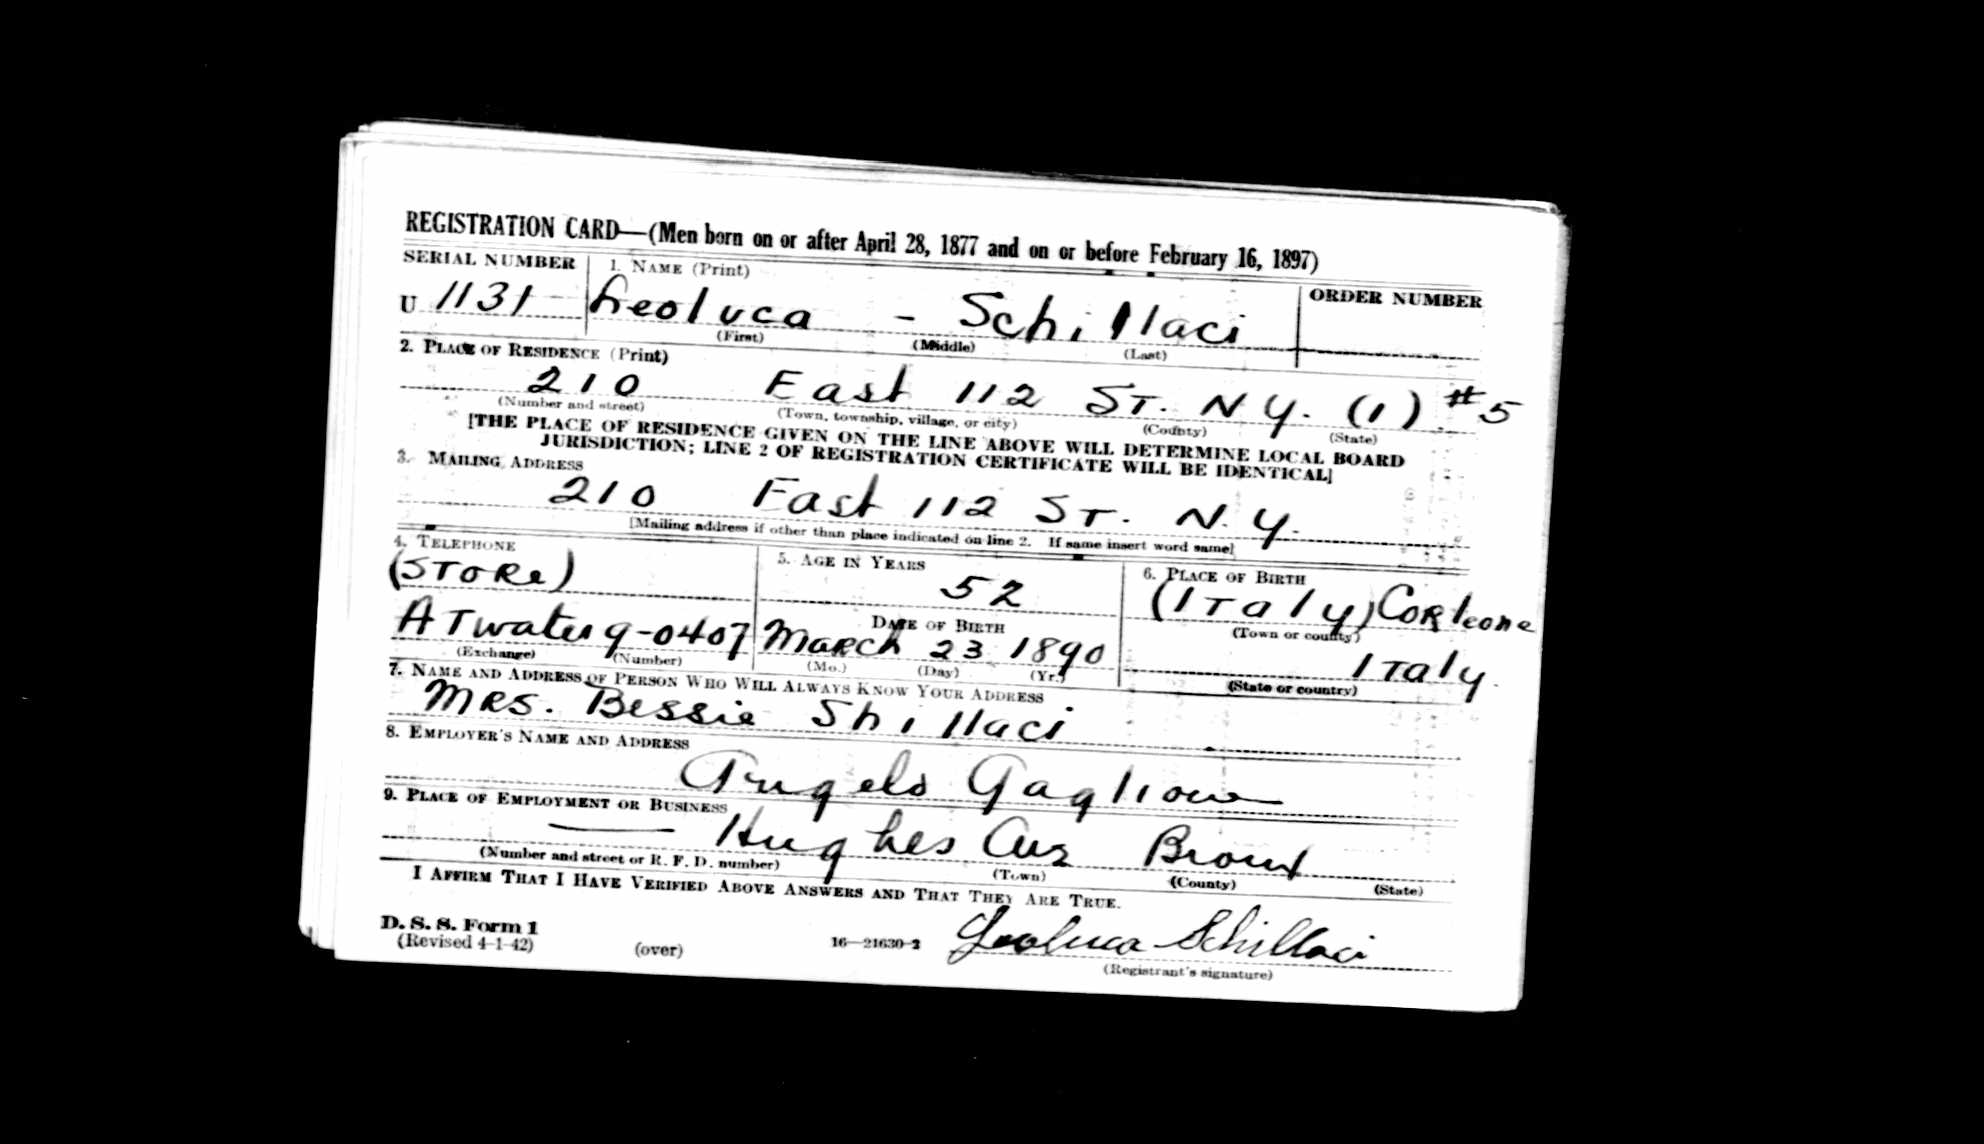 REGISTRATION CARD—(Men born on or after April 28, 1877 and on or before February 16, 1897)
SERIAL NUMBER 1. NAME (Print) ORDER NUMBER
U 1131 Leoluca - Schillaci
(First) (Middle) (Last)
2. PLACE OF RESIDENCE (Print)
210 East 112 ST. N Y. (1) #5
(Number and street) (Town, township, village, or city) (County) (State)
[THE PLACE OF RESIDENCE GIVEN ON THE LINE ABOVE WILL DETERMINE LOCAL BOARD
JURISDICTION; LINE 2 OF REGISTRATION CERTIFICATE WILL BE IDENTICAL]
3. MAILING ADDRESS
210 East 112 ST. N.Y.
[Mailing address if other than place indicated on line 2. If same insert word same]
4. TELEPHONE 5. AGE IN YEARS 6. PLACE OF BIRTH
(STORE) 52 (ITaly) CORleone
DATE OF BIRTH (Town or county)
ATwater 9-0407 MaRch 23 1890 ITaly.
(Exchange) (Number) (Mo.) (Day) (Yr.) (State or country)
7. NAME AND ADDRESS OF PERSON WHO WILL ALWAYS KNOW YOUR ADDRESS
MRS. Bessie Shillaci
8. EMPLOYER'S NAME AND ADDRESS
Angelo Gaglione
9. PLACE OF EMPLOYMENT OR BUSINESS
— Hughes Ave Bronx
(Number and street or R. F. D. number) (Town) (County) (State)
I AFFIRM THAT I HAVE VERIFIED ABOVE ANSWERS AND THAT THEY ARE TRUE.
D. S. S. Form 1
(Revised 4-1-42) (over) 16—21630-2 Leoluca Schillaci
(Registrant's signature)